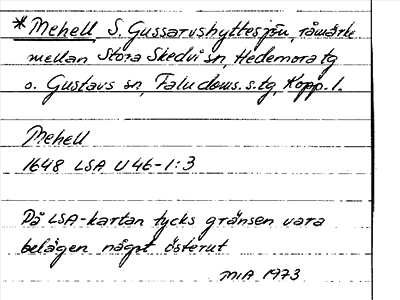 *Mehell, S. Gussarvshyttesjön, råmärke
mellan Stora Skedvi sn, Hedemora tg
o. Gustavs sn, Falu doms.s.tg, Kopp. l.
Mehell
1648 LSA U 46-1:3
På LSA-kartan tycks gränsen vara
belägen något österut
MIA 1973